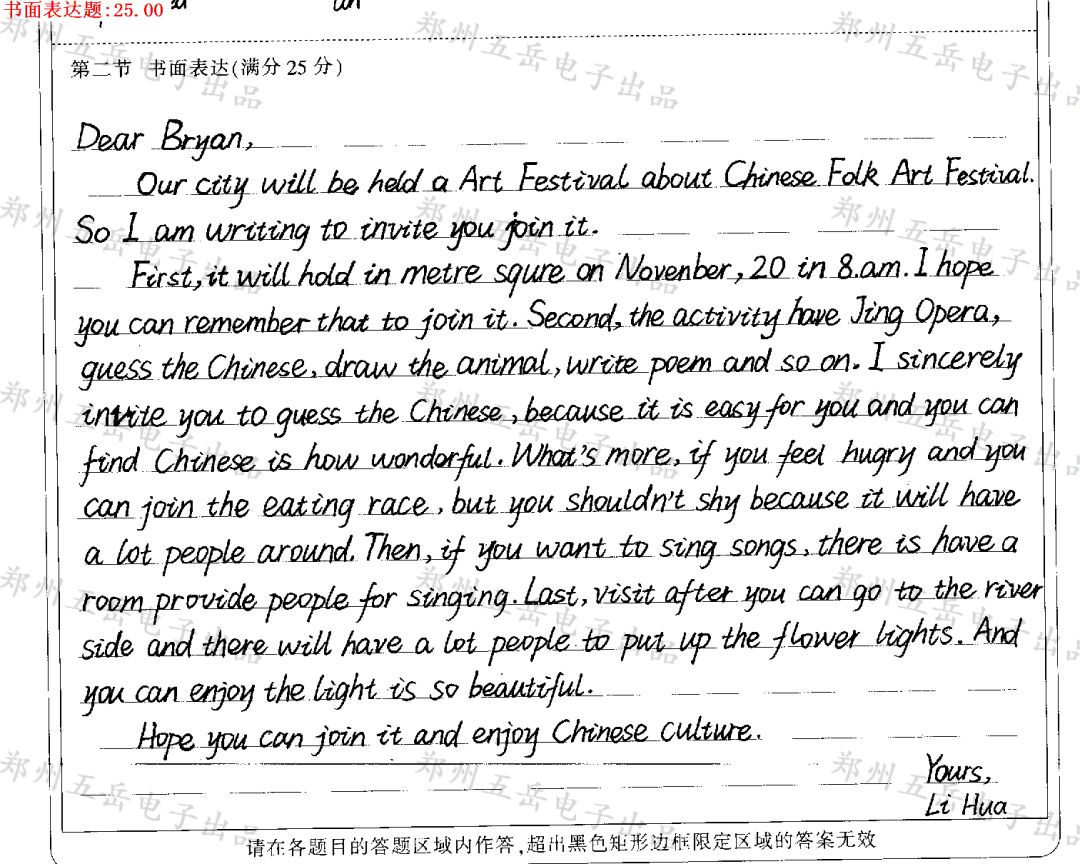 书面表达题:25.00
第二节 书面表达(满分25分)
Dear Bryan,
Our city will be held a Art Festival about Chinese Folk Art Festival.
So I am writing to invite you join it.
First, it will hold in metre squre on Novenber, 20 in 8.am. I hope
you can remember that to join it. Second, the activity have Jing Opera,
guess the Chinese, draw the animal, write poem and so on. I sincerely
invite you to guess the Chinese, because it is easy for you and you can
find Chinese is how wonderful. What's more, if you feel hugry and you
can join the eating race, but you shouldn't shy because it will have
a lot people around. Then, if you want to sing songs, there is have a
room provide people for singing. Last, visit after you can go to the river
side and there will have a lot people to put up the flower lights. And
you can enjoy the light is so beautiful.
Hope you can join it and enjoy Chinese culture.
Yours,
Li Hua
请在各题目的答题区域内作答,超出黑色矩形边框限定区域的答案无效
郑州五岳电子出品